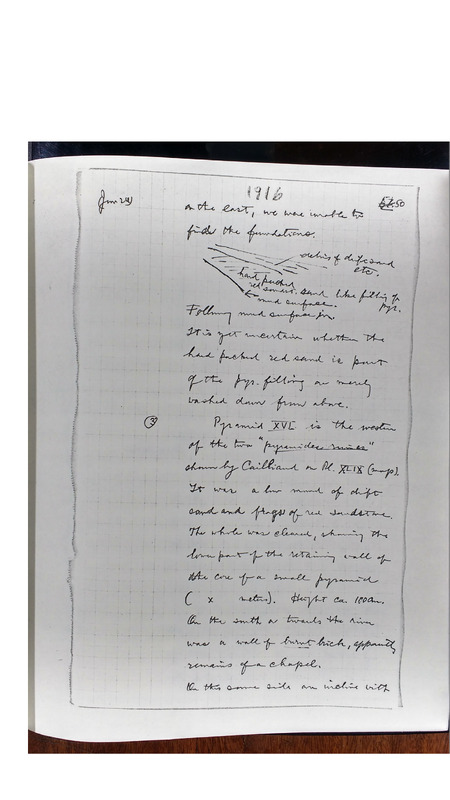 1916
Jan 29 50
on the east, we were unable to
find the foundations.
debris of drift sand
etc.
hard packed
red sandst. sand like filling of
pyr.
mud surface.
Following mud surface in.
It is yet uncertain whether the
hard packed red sand is part
of the pyr. filling or merely
washed down from above.
Pyramid XVI is the western
of the two "pyramides ruinées"
shown by Cailliaud on Pl. XLIX (map).
It was a low mound of drift
sand and fragts of red sandstone.
The whole was cleared, showing the
lower part of the retaining wall of
the core of a small pyramid
( x meters). Height ca. 100cm.
On the south or towards the river
was a wall of burnt brick, apparently
remains of a chapel.
On this same side an incline with